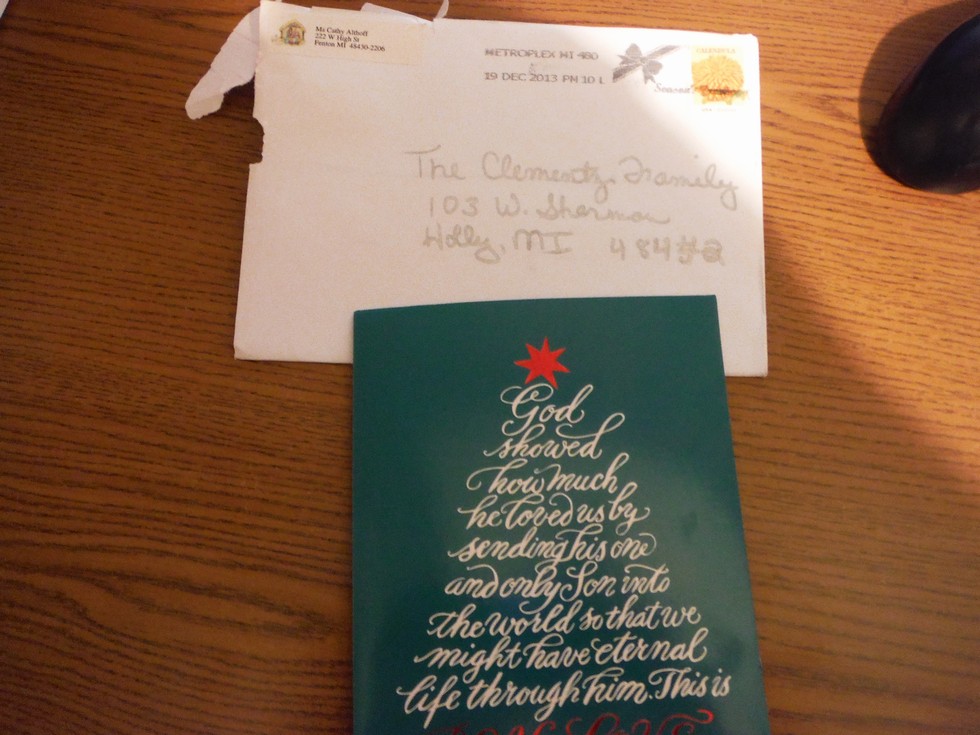 Ms Cathy Althoff
222 W High St
Fenton MI 48430-2206
METROPLEX MI 480
19 DEC 2013 PM 10 L
CALENDULA
The Clementz Family
103 W. Sherman
Holly, MI 48442
God
showed
how much
he loved us by
sending his one
and only Son into
the world so that we
might have eternal
life through him. This is